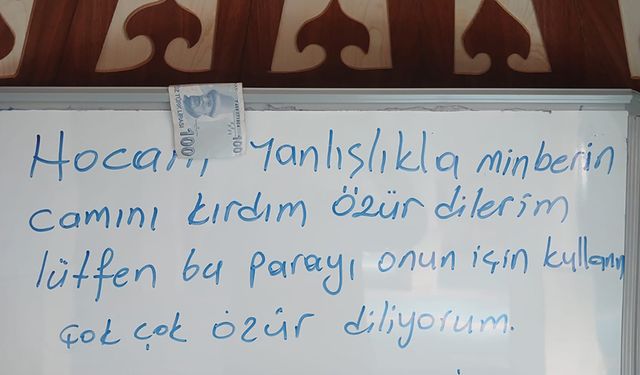 Hocam, Yanlışlıkla minberin
camını kırdım Özür dilerim
lütfen bu parayı onun için kullanın
çok çok özür diliyorum.
100
100